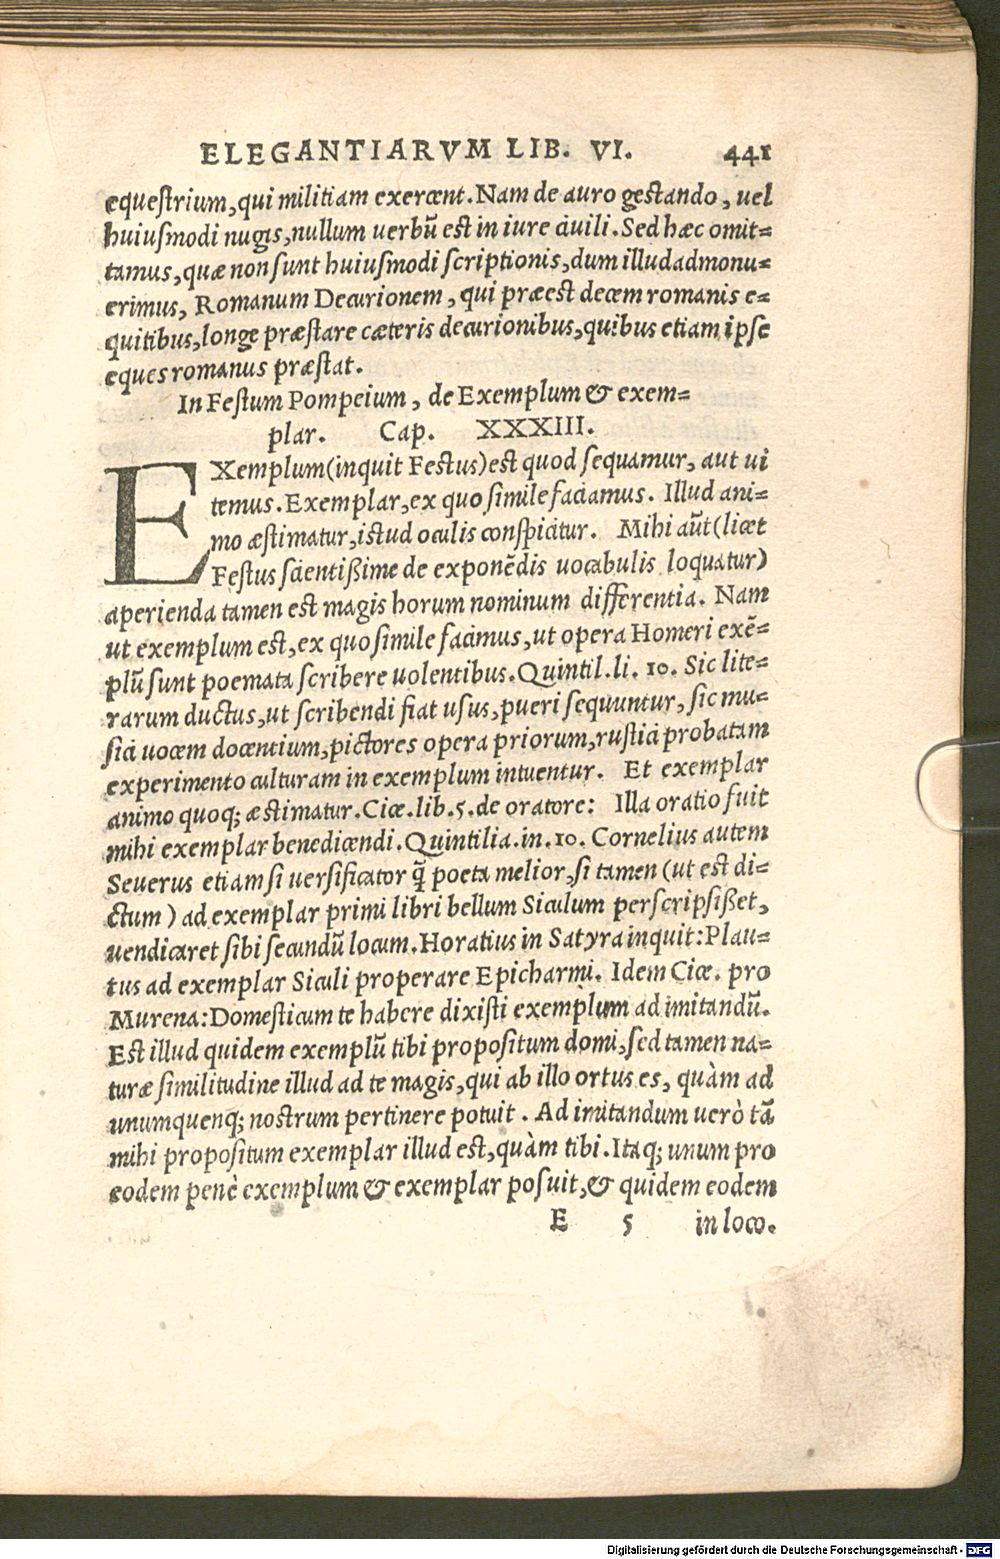 ELEGANTIARVM LIB. VI. 441
equestrium, qui militiam exercent. Nam de auro gestando, uel
huiusmodi nugis, nullum uerbū est in iure ciuili. Sed hæc omit=
tamus, quæ non sunt huiusmodi scriptionis, dum illud admonu=
erimus, Romanum Decurionem, qui præest decem romanis e=
quitibus, longe præstare cæteris decurionibus, quibus etiam ipse
eques romanus præstat.
In Festum Pompeium, de Exemplum & exem=
plar. Cap. XXXIII.
EXemplum (inquit Festus) est quod sequamur, aut ui
temus. Exemplar, ex quo simile faciamus. Illud ani=
mo æstimatur, istud oculis conspicitur. Mihi aūt (licet
Festus scientißime de exponēdis uocabulis loquatur)
aperienda tamen est magis horum nominum differentia. Nam
ut exemplum est, ex quo simile facimus, ut opera Homeri exē=
plū sunt poemata scribere uolentibus. Quintil. li. 10. Sic lite=
rarum ductus, ut scribendi fiat usus, pueri sequuntur, sic mu=
sici uocem docentium, pictores opera priorum, rustici probatam
experimento culturam in exemplum intuentur. Et exemplar
animo quoq; æstimatur. Cice. lib. 5. de oratore: Illa oratio fuit
mihi exemplar benedicendi. Quintilia. in. 10. Cornelius autem
Seuerus etiam si uersificator q̄ poeta melior, si tamen (ut est di=
ctum) ad exemplar primi libri bellum Siculum perscripsißet,
uendicaret sibi secundū locum. Horatius in Satyra inquit: Plau=
tus ad exemplar Siculi properare Epicharmi. Idem Cice. pro
Murena: Domesticum te habere dixisti exemplum ad imitandū.
Est illud quidem exemplū tibi propositum domi, sed tamen na=
turæ similitudine illud ad te magis, qui ab illo ortus es, quàm ad
unumquenq; nostrum pertinere potuit. Ad imitandum uerò tā
mihi propositum exemplar illud est, quàm tibi. Itaq; unum pro
eodem penè exemplum & exemplar posuit, & quidem eodem
E 5 in loco.
Digitalisierung gefördert durch die Deutsche Forschungsgemeinschaft - DFG